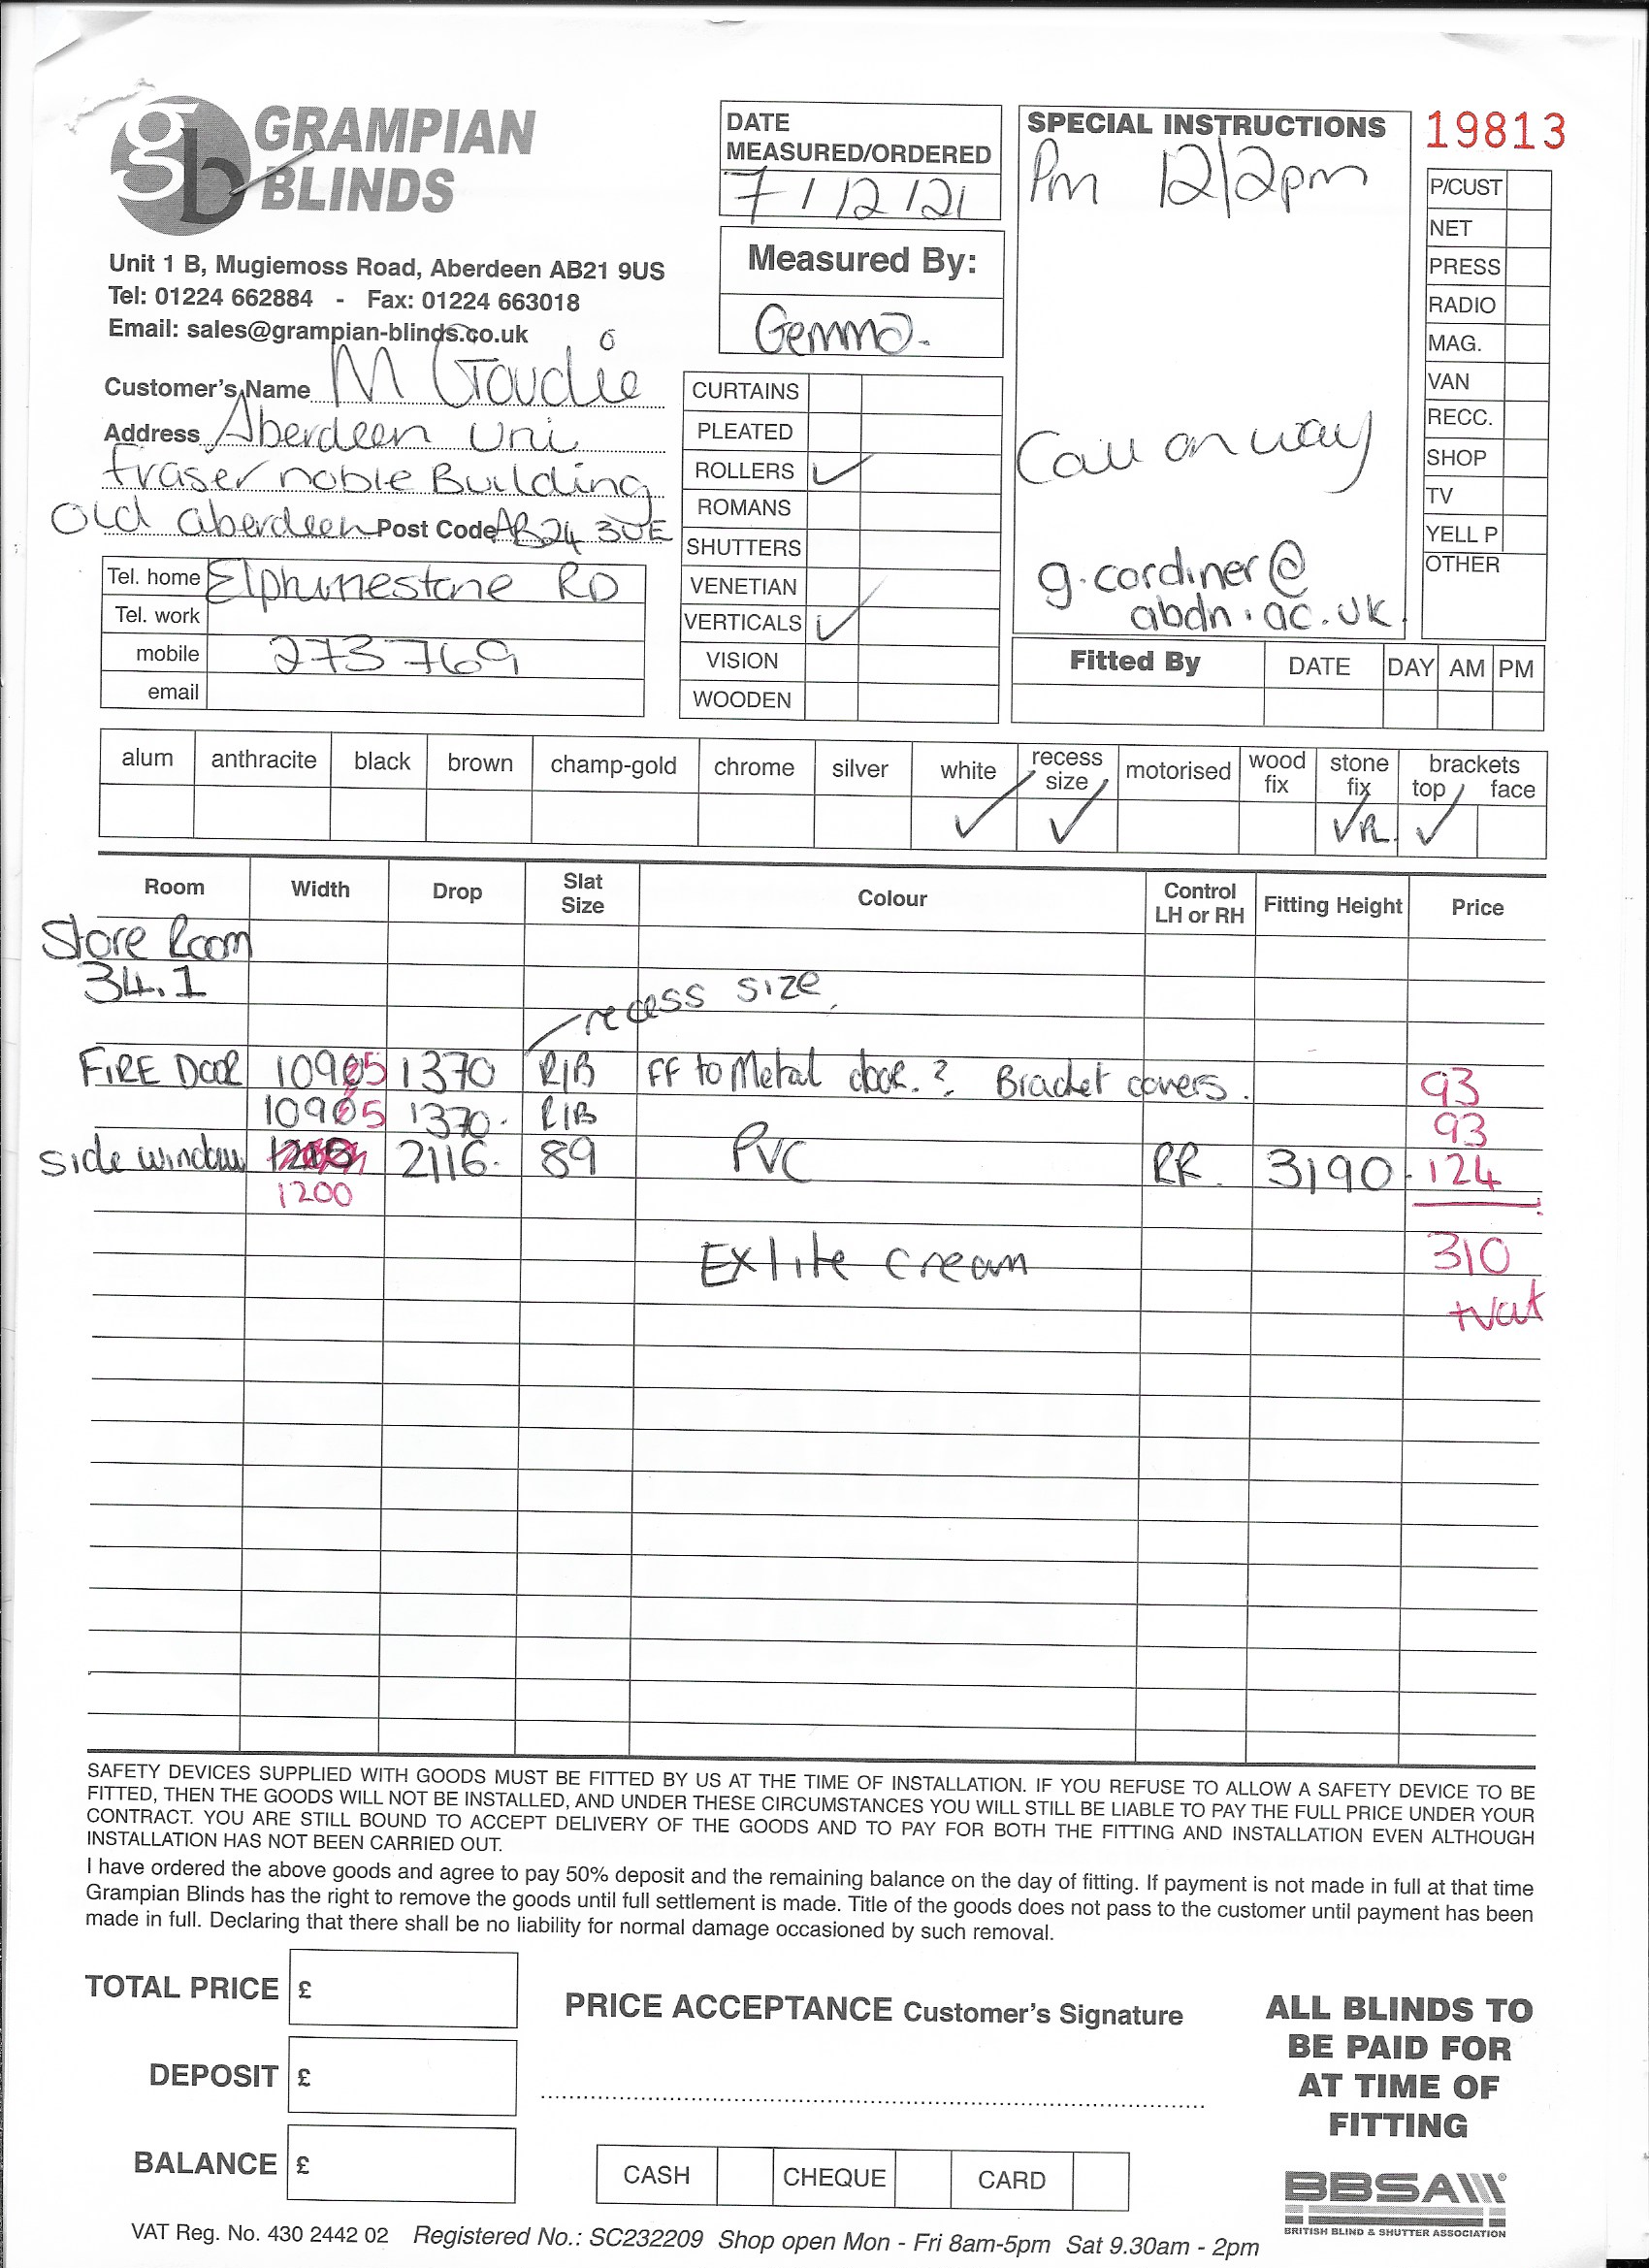 gb GRAMPIAN BLINDS
Unit 1 B, Mugiemoss Road, Aberdeen AB21 9US
Tel: 01224 662884 - Fax: 01224 663018
Email: sales@grampian-blinds.co.uk
Customer's Name M Goudie
Address Aberdeen Uni
Fraser noble Building
Old aberdeen Post Code AB24 3UE
Tel. home Elphinestone RD
Tel. work
mobile 273769
email
DATE MEASURED/ORDERED
7/12/21
Measured By:
Gemma.
CURTAINS
PLEATED
ROLLERS ✓
ROMANS
SHUTTERS
VENETIAN
VERTICALS ✓
VISION
WOODEN
SPECIAL INSTRUCTIONS
Pm 12/2pm
Call on way
g.cardiner@
abdn.ac.uk
19813
P/CUST
NET
PRESS
RADIO
MAG.
VAN
RECC.
SHOP
TV
YELL P
OTHER
Fitted By DATE DAY AM PM
alum anthracite black brown champ-gold chrome silver white recess size motorised wood fix stone fix brackets top face
✓ ✓ ✓R. ✓
Room Width Drop Slat Size Colour Control LH or RH Fitting Height Price
Store Room
34.1
recess size
FIRE DOOR 1370 R/B FF to Metal door.? Bracket covers. 93
1370. R/B 93
Side window 2116. 89 PVC RR. 3190. 124
1200
310
Exlite cream
+vat
SAFETY DEVICES SUPPLIED WITH GOODS MUST BE FITTED BY US AT THE TIME OF INSTALLATION. IF YOU REFUSE TO ALLOW A SAFETY DEVICE TO BE
FITTED, THEN THE GOODS WILL NOT BE INSTALLED, AND UNDER THESE CIRCUMSTANCES YOU WILL STILL BE LIABLE TO PAY THE FULL PRICE UNDER YOUR
CONTRACT. YOU ARE STILL BOUND TO ACCEPT DELIVERY OF THE GOODS AND TO PAY FOR BOTH THE FITTING AND INSTALLATION EVEN ALTHOUGH
INSTALLATION HAS NOT BEEN CARRIED OUT.
I have ordered the above goods and agree to pay 50% deposit and the remaining balance on the day of fitting. If payment is not made in full at that time
Grampian Blinds has the right to remove the goods until full settlement is made. Title of the goods does not pass to the customer until payment has been
made in full. Declaring that there shall be no liability for normal damage occasioned by such removal.
TOTAL PRICE £
DEPOSIT £
BALANCE £
PRICE ACCEPTANCE Customer's Signature
CASH CHEQUE CARD
ALL BLINDS TO
BE PAID FOR
AT TIME OF
FITTING
BBSA
BRITISH BLIND & SHUTTER ASSOCIATION
VAT Reg. No. 430 2442 02 Registered No.: SC232209 Shop open Mon - Fri 8am-5pm Sat 9.30am - 2pm